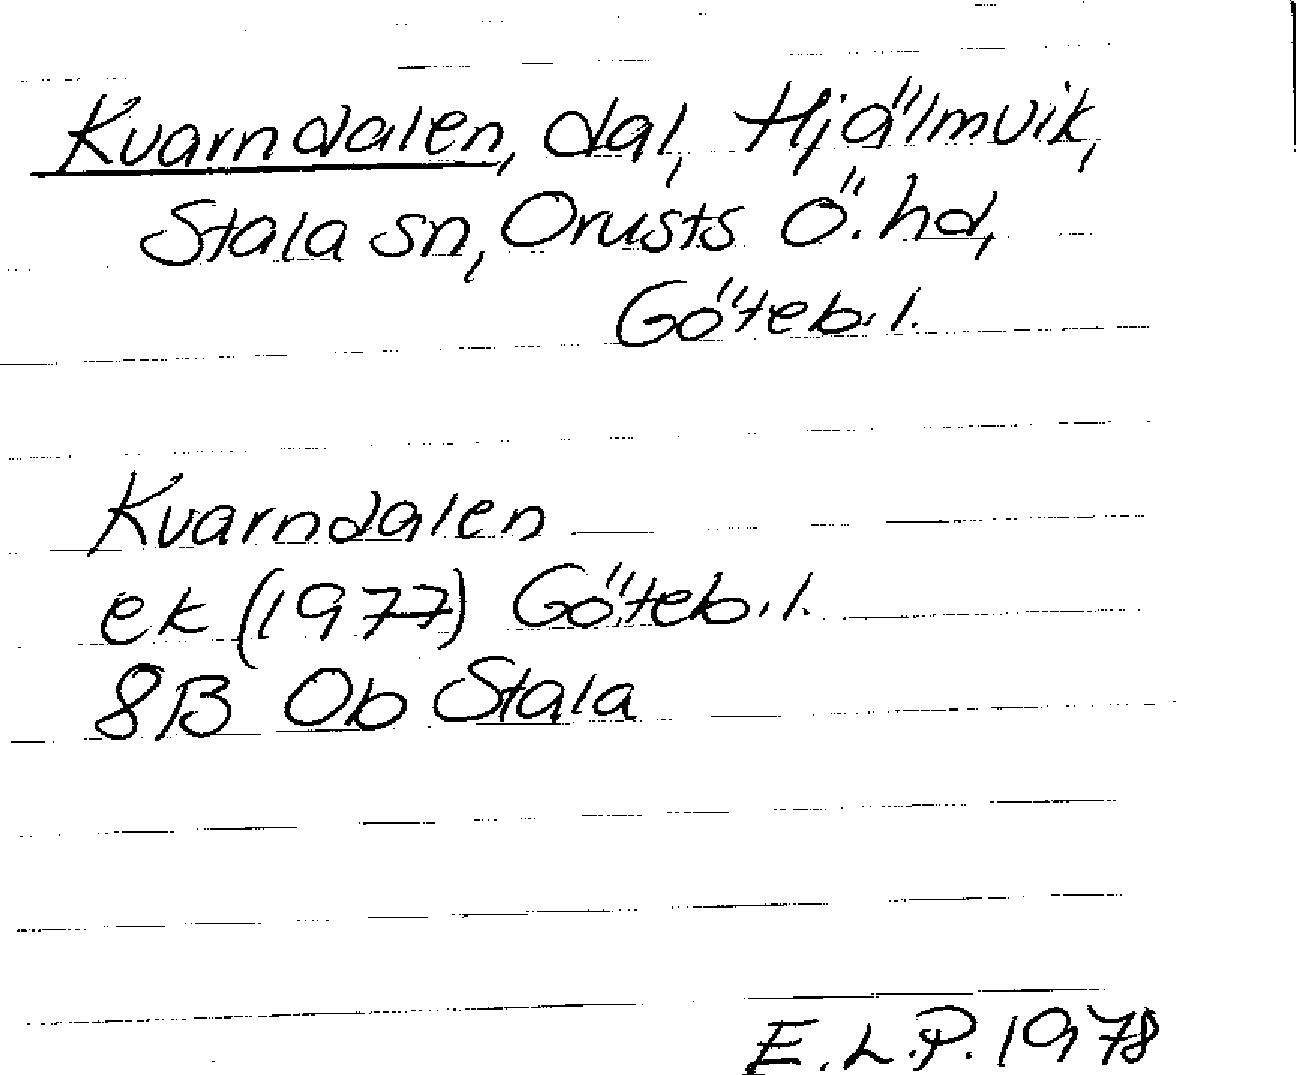 Kvarndalen, dal, Hjälmvik,
Stala sn, Orusts Ö. hd,
Göteb. l.
Kvarndalen
ek (1977) Göteb. l.
8B 0b Stala
E.L.P. 1978